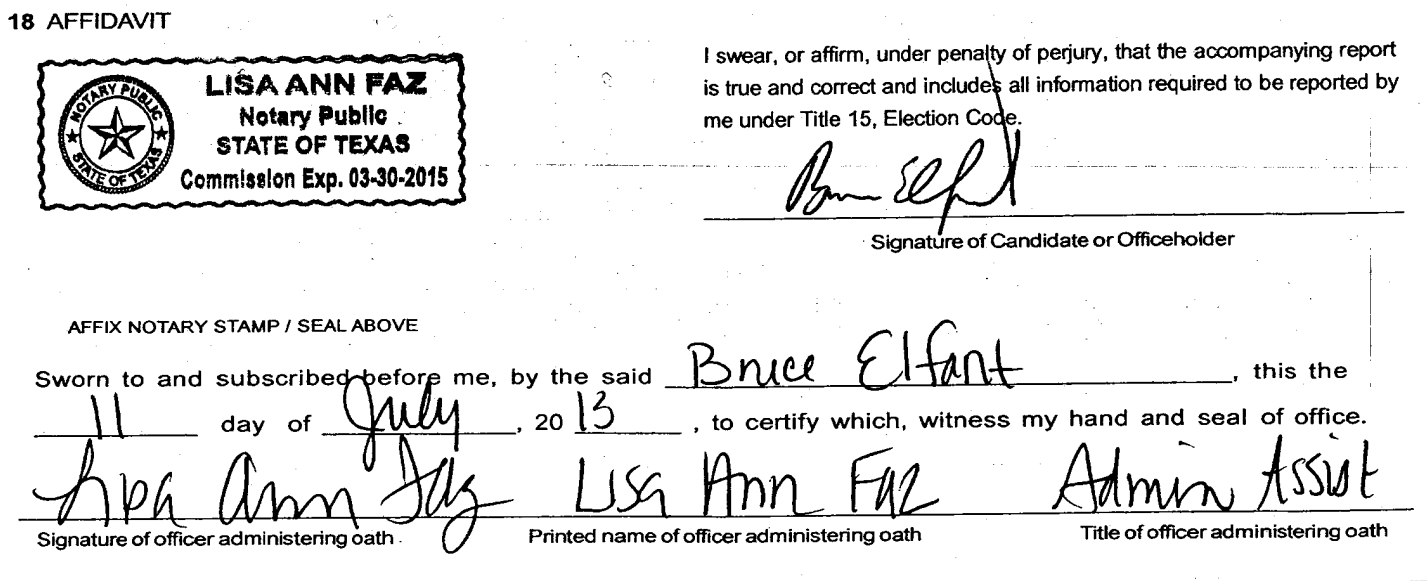 18 AFFIDAVIT
NOTARY PUBLIC
STATE OF TEXAS
LISA ANN FAZ
Notary Public
STATE OF TEXAS
Commission Exp. 03-30-2015
I swear, or affirm, under penalty of perjury, that the accompanying report
is true and correct and includes all information required to be reported by
me under Title 15, Election Code.
Bruce Elfant
Signature of Candidate or Officeholder
AFFIX NOTARY STAMP / SEAL ABOVE
Sworn to and subscribed before me, by the said Bruce Elfant, this the
11 day of July, 20 13, to certify which, witness my hand and seal of office.
Lisa Ann Faz Lisa Ann Faz Admin Assist
Signature of officer administering oath Printed name of officer administering oath Title of officer administering oath